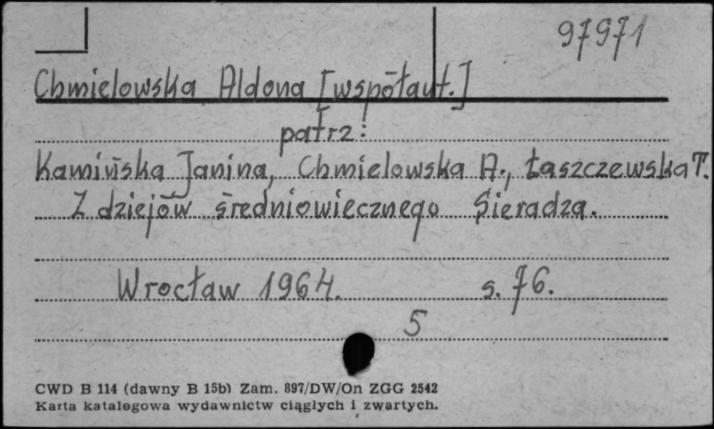 97971
Chmielowska Aldona [współaut.]
patrz:
Kamińska Janina, Chmielowska A., Łaszczewska T.
Z dziejów średniowiecznego Sieradza.
Wrocław 1964. s. 76.
5
CWD B 114 (dawny B 15b) Zam. 897/DW/On ZGG 2542
Karta katalogowa wydawnictw ciągłych i zwartych.